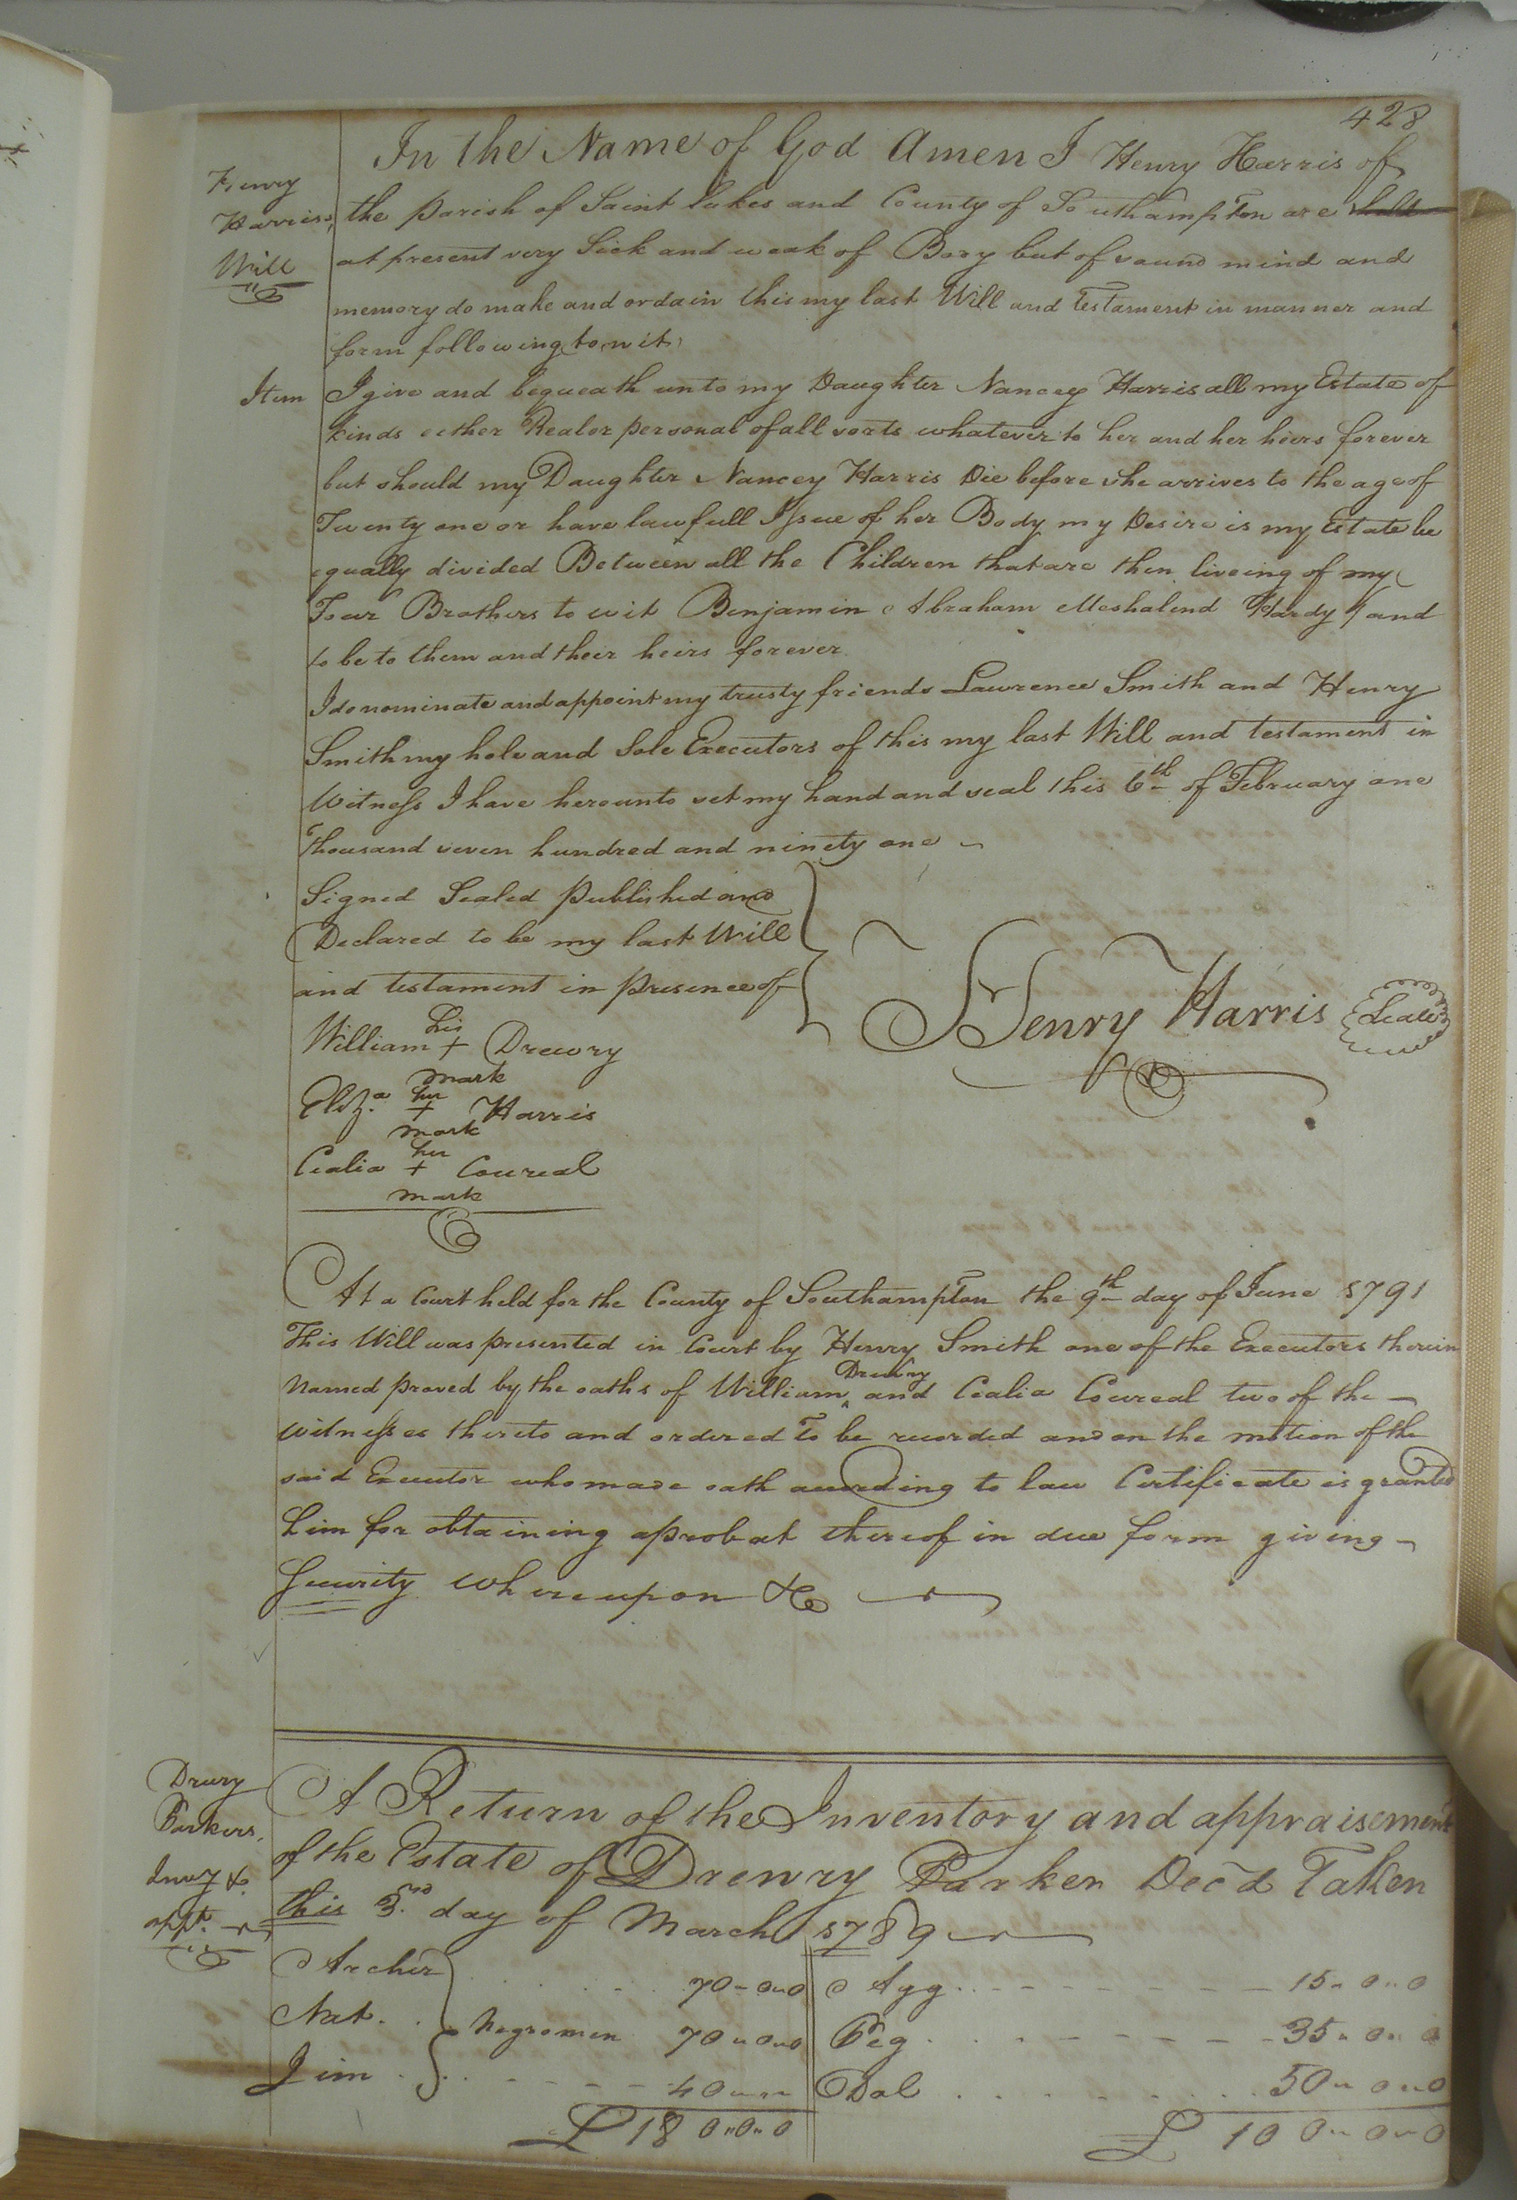 428
Henry
Harris's
Will
In the Name of God Amen I Henry Harris of
the parish of Saint Lukes and County of Southampton are
at present very Sick and weak of Body but of sound mind and
memory do make and ordain this my last Will and Testament in manner and
form following to wit,
Item I give and bequeath unto my Daughter Nancey Harris all my Estate of
kinds either Real or personal of all sorts whatever to her and her hiers forever
but should my Daughter Nancey Harris Die before she arrives to the age of
Twenty one or have lawfull Issue of her Body my Desire is my Estate be
equally divided Between all the Children that are then liveing of my
Four Brothers to wit Benjamin Abraham Hardy and
to be to them and their heirs forever.
I do nominate and appoint my trusty friends Lawrence Smith and Henry
Smith my hole and Sole Executors of this my last Will and testament in
Witness I have hereunto set my hand and seal this 6th of February one
Thousand seven hundred and ninety one
Signed Sealed published and
Declared to be my last Will
and testament in presence of
Henry Harris Seal
his
William + Drewry
mark
her
Eliz.a + Harris
mark
her
Cealia + Coureal
mark
At a Court held for the County of Southampton the 9th day of June 1791
This Will was presented in Court by Henry Smith one of the Executors therein
Drewry
Named proved by the oaths of William ‸ and Cealia Coureal two of the
witnesses thereto and ordered To be recorded and on the motion of the
said Executor who made oath according to law Certificate is granted
him for obtaining a probat thereof in due form giving
Security whereupon &c
Drury
Parkers,
Invy &
appt.
A Return of the Inventory and appraisement
of the Estate of Drewry Parker Dec'd Taken
this 3rd day of March 1789
Archer 70-0-0
Nat. Negro men 70-0-0
Jim 40
£ 180-0-0
Agg 15-0-0
Peg 35-0-0
Dol 50-0-0
£ 100-0-0